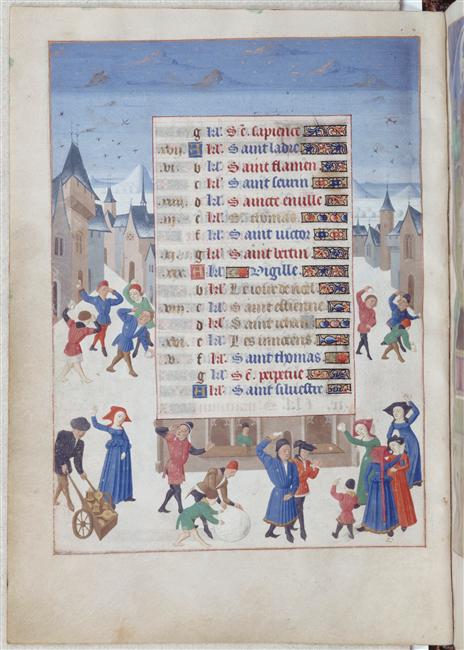 g kl' S^e. sapience
xviii. A kl' Saint ladre
vii. b kl' Saint flamen
c kl' Saint seurin
d kl' Saincte eville
e kl' S. thomas
f kl' Saint victor
g kl' Saint bertin
xix. A kl' Vigille
b kl' Le iour de noel
viii. c kl' Saint estienne
d kl' Saint iehan
xvi. e kl' Les innocens
v. f kl' Saint thomas
g kl' S^e. perpetue
A kl' Saint silvestre